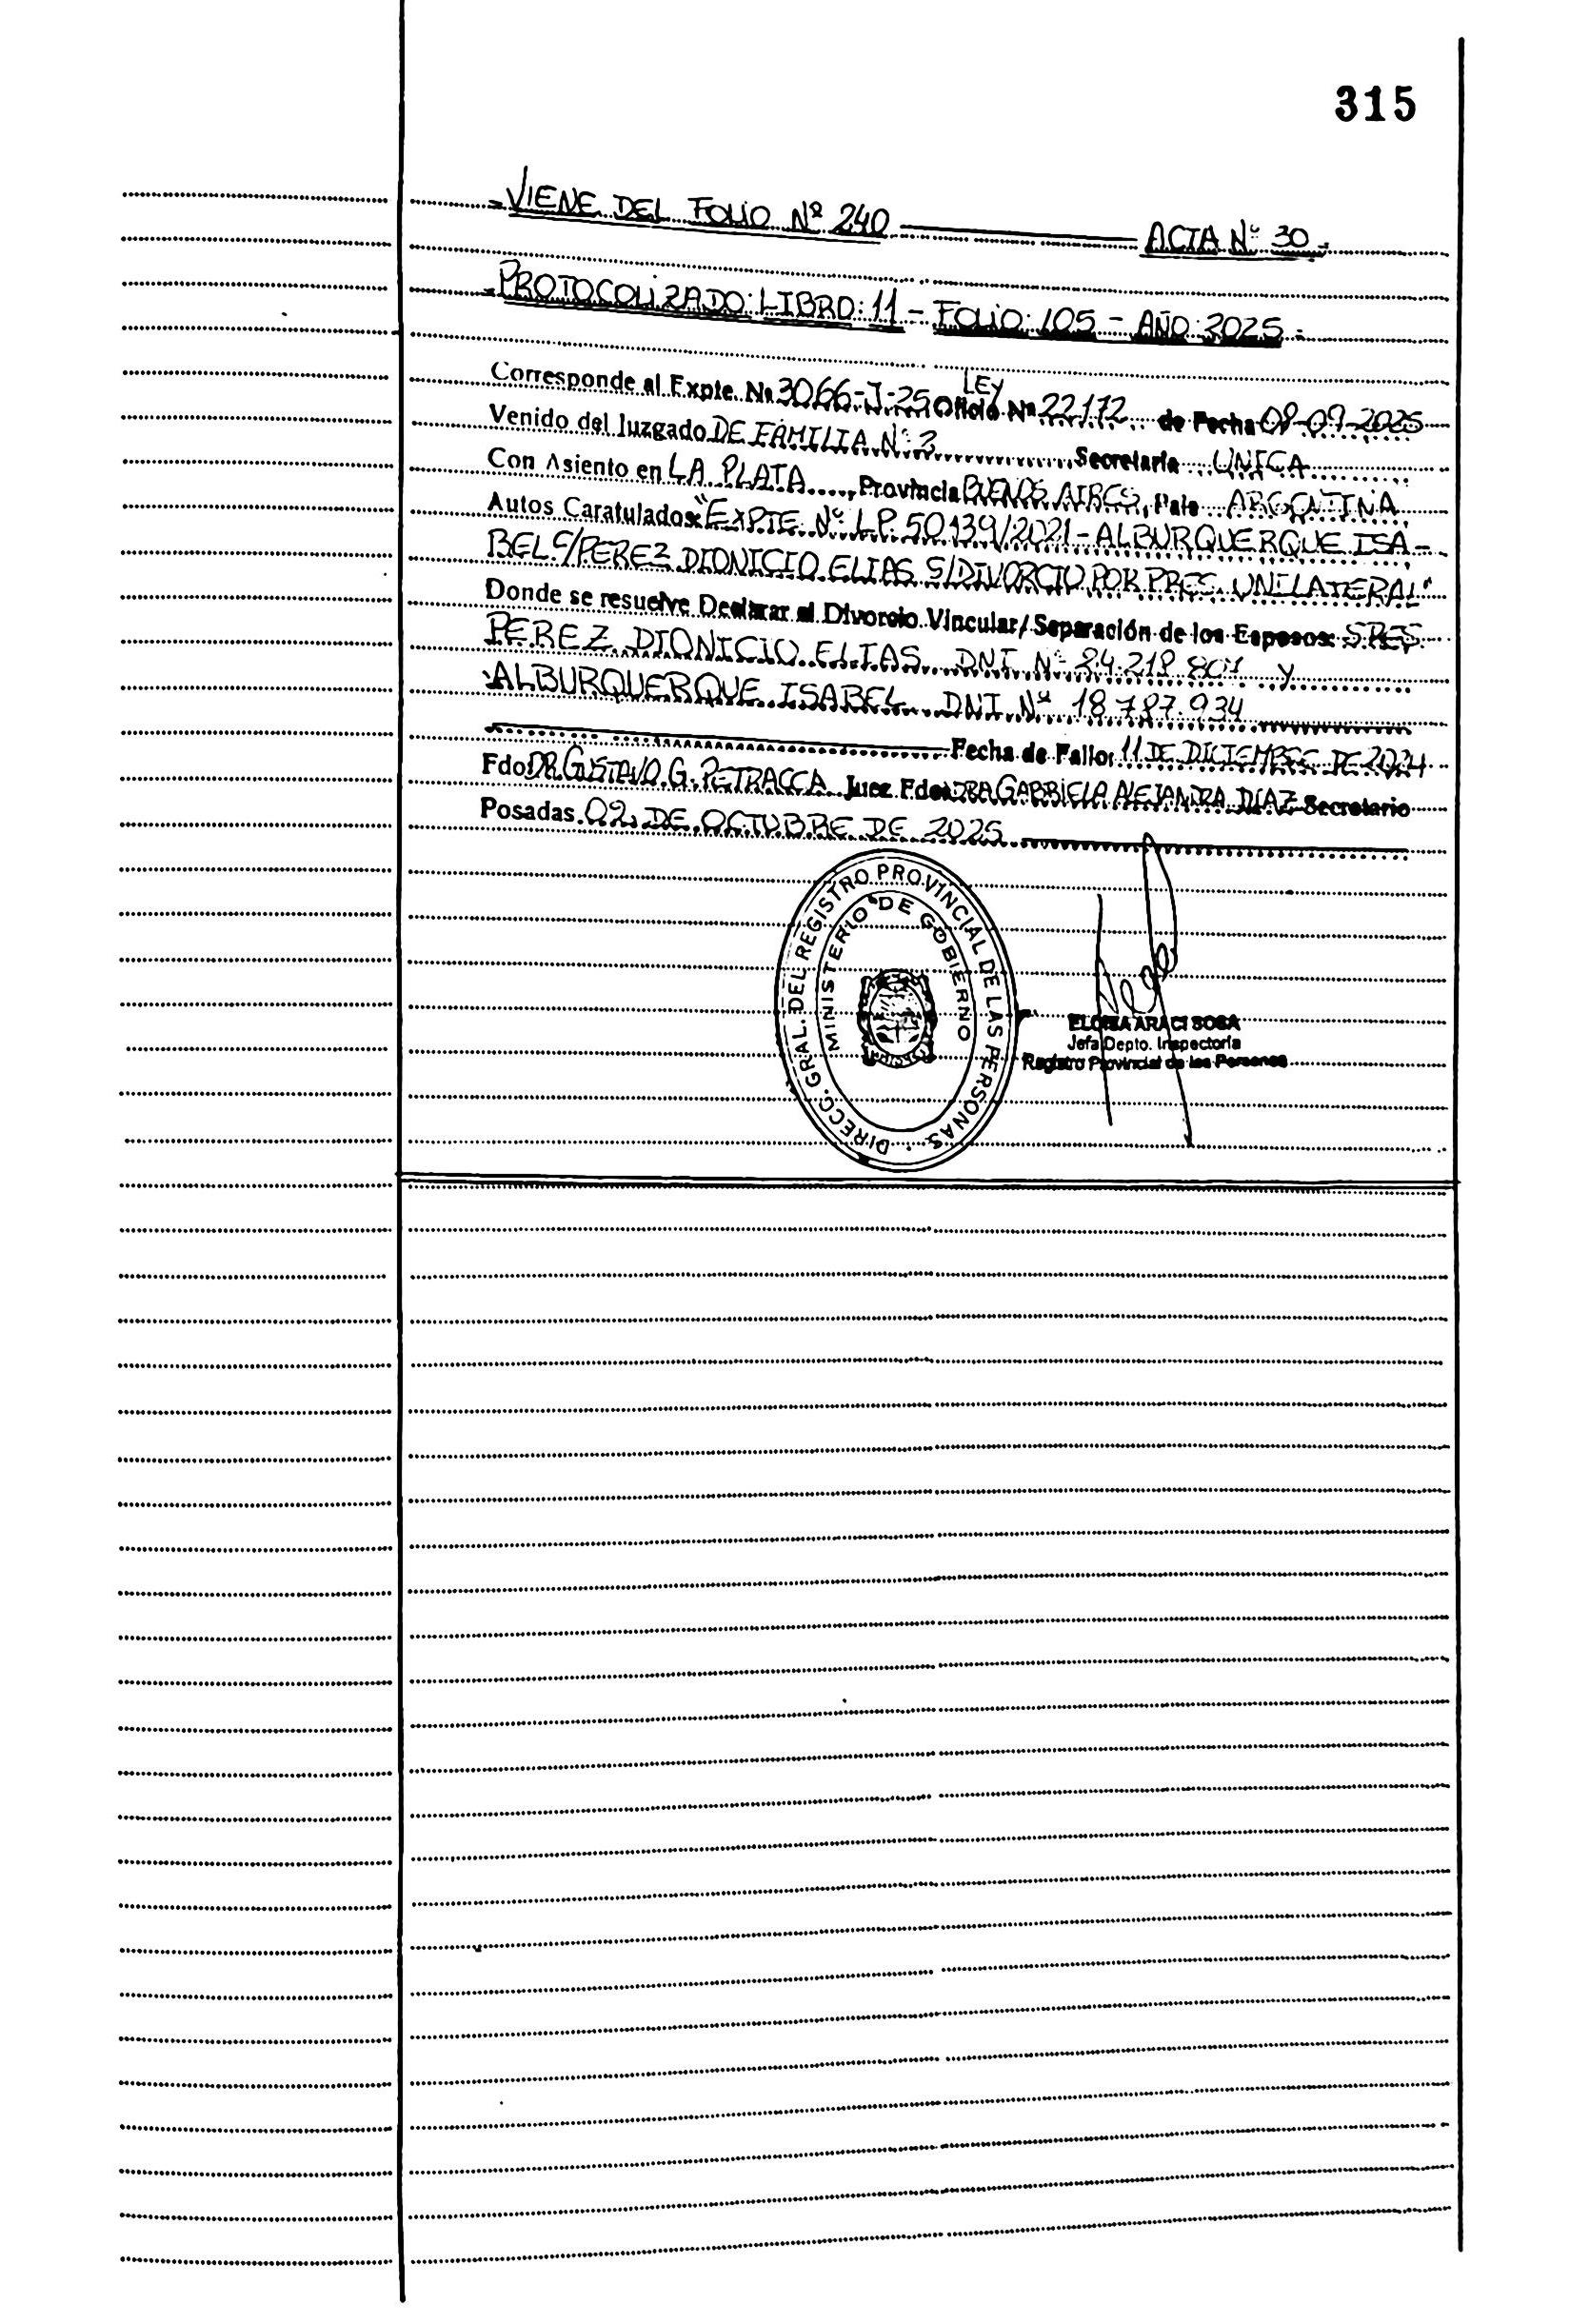 315
-VIENE DEL FOLIO Nº 240 ACTA Nº 30-
-PROTOCOLIZADO: LIBRO: 11 - FOLIO: 105 - AÑO: 2025-
LEY
Corresponde al Expte. Nº 3066-J-25 Oficio Nº 22.172 de Fecha 09-2025
Venido del Juzgado DE FAMILIA Nº 2 Secretaría UNICA
Con Asiento en LA PLATA, Provincia BUENOS AIRES, País ARGENTINA
Autos Caratulados: "EXPTE. Nº LP. 50139/2021-ALBURQUERQUE ISA-
BEL C/PEREZ DIONICIO ELIAS S/DIVORCIO POR PRES. UNILATERAL"
Donde se resuelve Declarar el Divorcio Vincular/Separación de los Esposos: SRES
PEREZ DIONICIO ELIAS DNI Nº 24.218.801 y
ALBURQUERQUE ISABEL DNI Nº 18.787.934
Fecha de Fallo: 11 DE DICIEMBRE DE 2024
Fdo DR GUSTAVO G. PETRACCA Juez Fdo: DRA GABRIELA ALEJANDRA DIAZ Secretario
Posadas 02 DE OCTUBRE DE 2025
DIRECC. GRAL. DEL REGISTRO PROVINCIAL DE LAS PERSONAS
MINISTERIO DE GOBIERNO
ELOISA ARACI SOSA
Jefa Depto. Inspectoría
Registro Provincial de las Personas